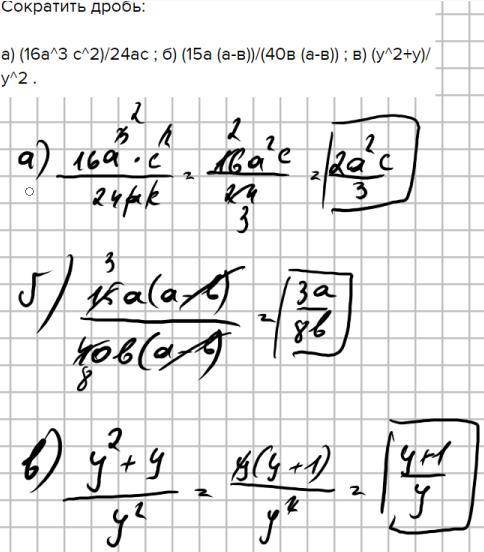 Сократить дробь:
а) (16а^3 с^2)/24ас ; б) (15а (а-в))/(40в (а-в)) ; в) (у^2+у)/
у^2 .
а) 16a^3 · c^2 / 24ac = 16a^2 c / 24 = 2a^2 c / 3
б) 15a(a-b) / 40b(a-b) = 3a / 8b
в) y^2 + y / y^2 = y(y+1) / y^2 = y+1 / y